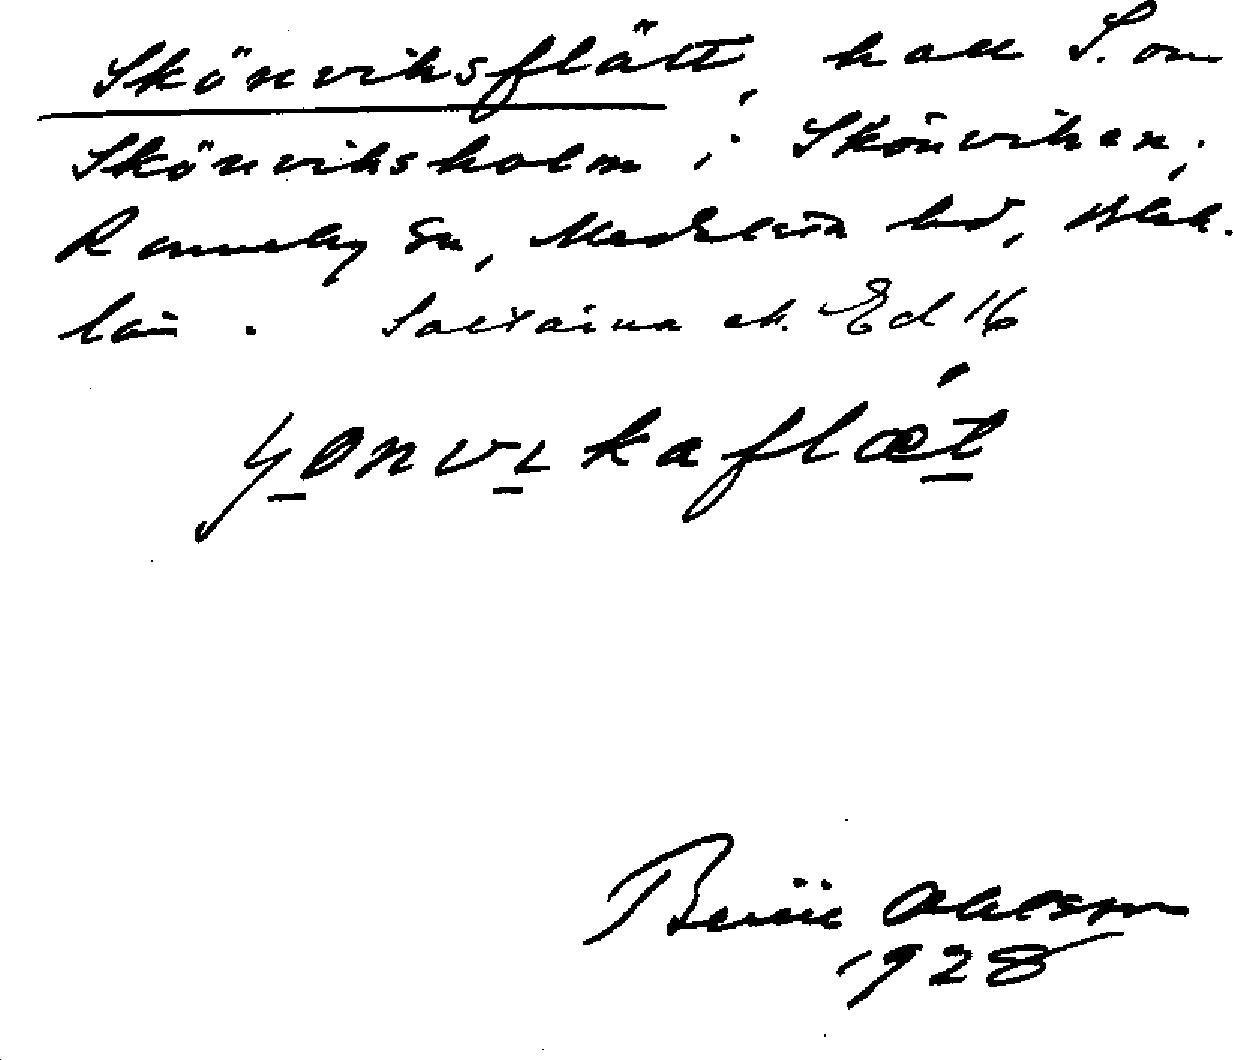 Skönviksflätt, hall S. om
Skönviksholm i Skönviken,
Ronneby sn, Medelsta hd, Blek.
län. Saltärna ek. Ed 16
ʃonvikaflæt
Bertil Ohlsson
1928